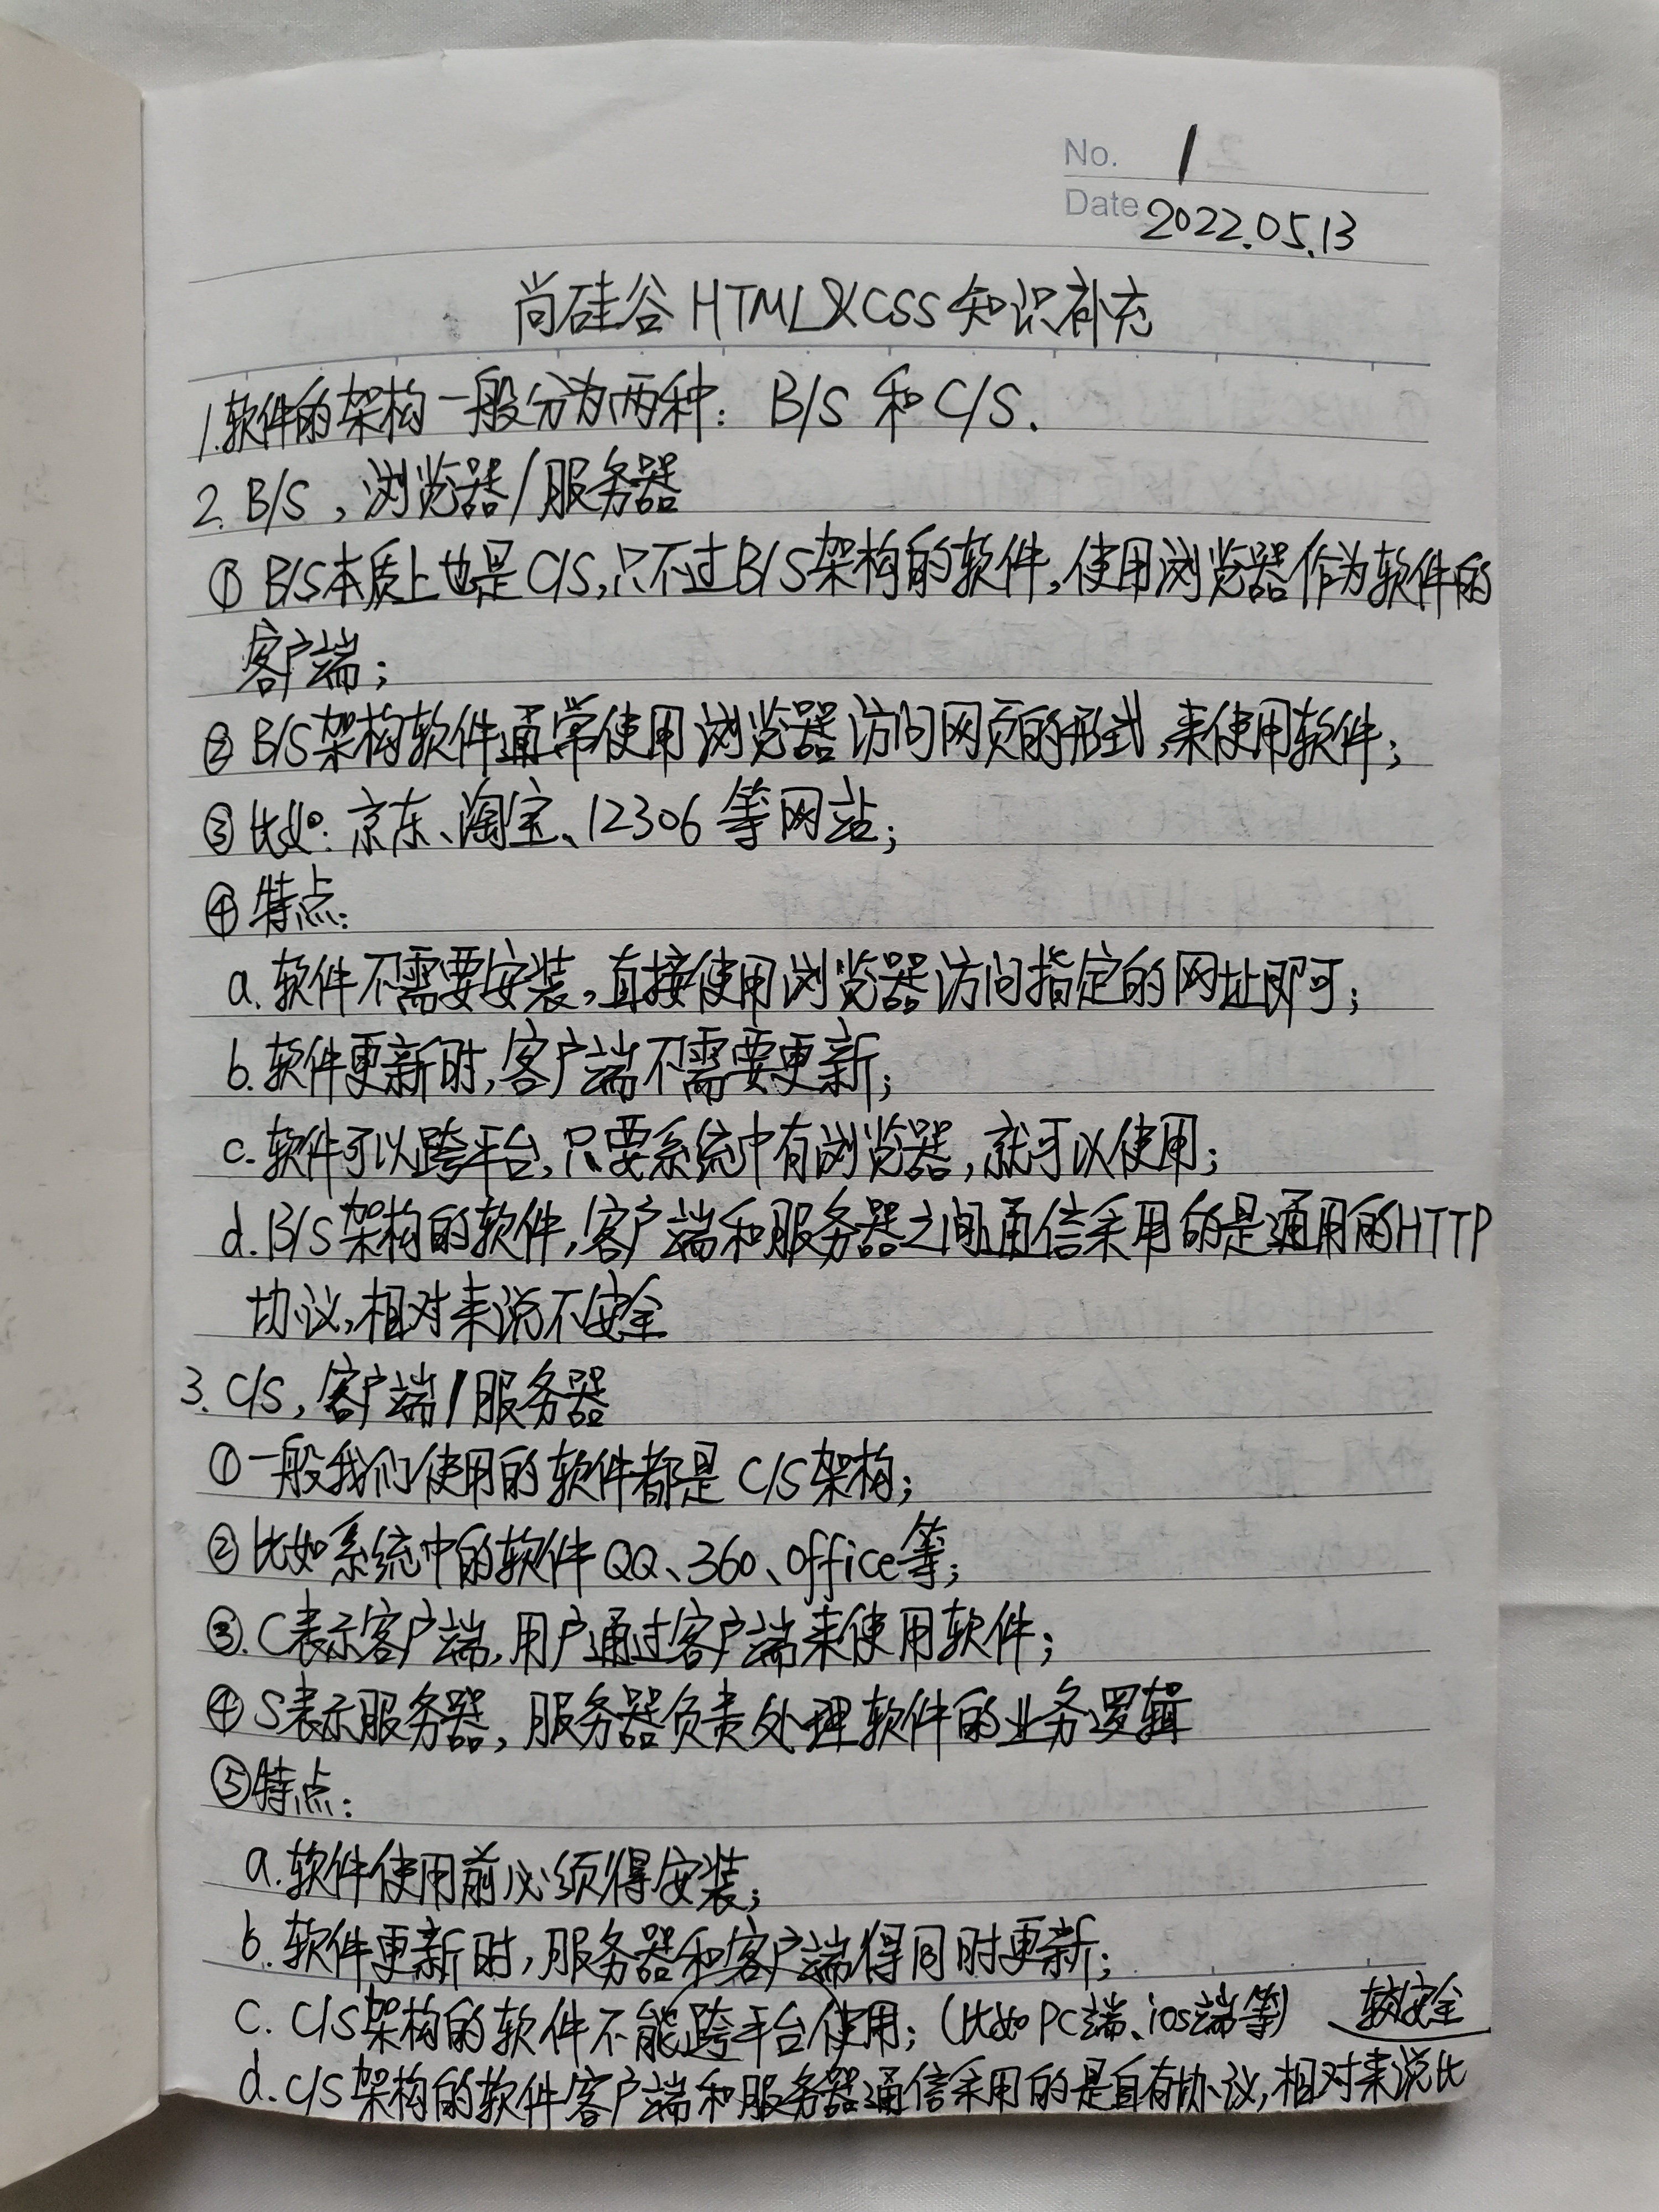 No. 1
Date 2022.05.13
尚硅谷HTML&CSS知识补充
1.软件的架构一般分为两种：B/S 和 C/S.
2. B/S，浏览器/服务器
① B/S本质上也是C/S,只不过B/S架构的软件,使用浏览器作为软件的
客户端；
② B/S架构软件通常使用浏览器访问网页的形式,来使用软件；
③ 比如：京东、淘宝、12306等网站；
④ 特点：
a. 软件不需要安装,直接使用浏览器访问指定的网址即可；
b. 软件更新时,客户端不需要更新；
c. 软件可以跨平台,只要系统中有浏览器,就可以使用；
d. B/S架构的软件,客户端和服务器之间通信采用的是通用的HTTP
协议,相对来说不安全
3. C/S, 客户端/服务器
① 一般我们使用的软件都是C/S架构；
② 比如系统中的软件QQ、360、office等；
③. C表示客户端,用户通过客户端来使用软件；
④ S表示服务器,服务器负责处理软件的业务逻辑
⑤ 特点：
a. 软件使用前必须得安装；
b. 软件更新时,服务器和客户端得同时更新；
c. C/S架构的软件不能跨平台使用；(比如PC端、ios端等) 较安全
d. C/S架构的软件客户端和服务器通信采用的是自有协议,相对来说比